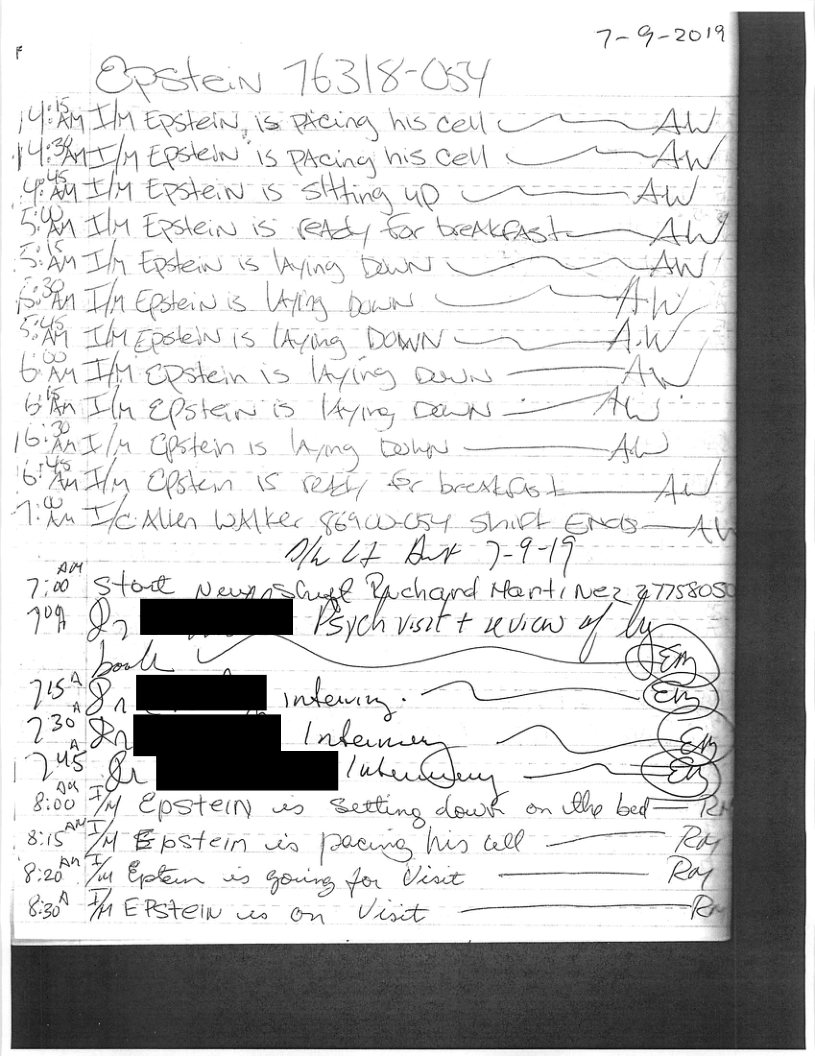 7-9-2019
Epstein 76318-054
4:15 AM I/M Epstein, is pacing his cell AW
4:30 AM I/M Epstein is pacing his cell AW
4:45 AM I/M Epstein is sitting up AW
5:00 AM I/M Epstein is ready for breakfast AW
5:15 AM I/M Epstein is laying Down AW
5:30 AM I/M Epstein is laying Down AW
5:45 AM I/M Epstein is laying DOWN A.W
6:00 AM I/M Epstein is laying Down AW
6:15 AM I/M Epstein is laying Down AW
6:30 AM I/M Epstein is laying Down AW
6:45 AM I/M Epstein is ready for breakfast AW
7:00 AM I/C Allen Walker 86900-054 Shift Ends AW
7-9-19
7:00 AM Start New Richard Martinez 27758050
Dr Psych visit + review of log
book EM
715 A Dr interview EM
730 A Dr EM
745 A Dr EM
8:00 AM I/M Epstein is setting down on the bed RM
8:15 AM I/M Epstein is pacing his cell RM
8:20 AM I/M Eptein is going for Visit RM
8:30 A I/M EPstein is on Visit RM